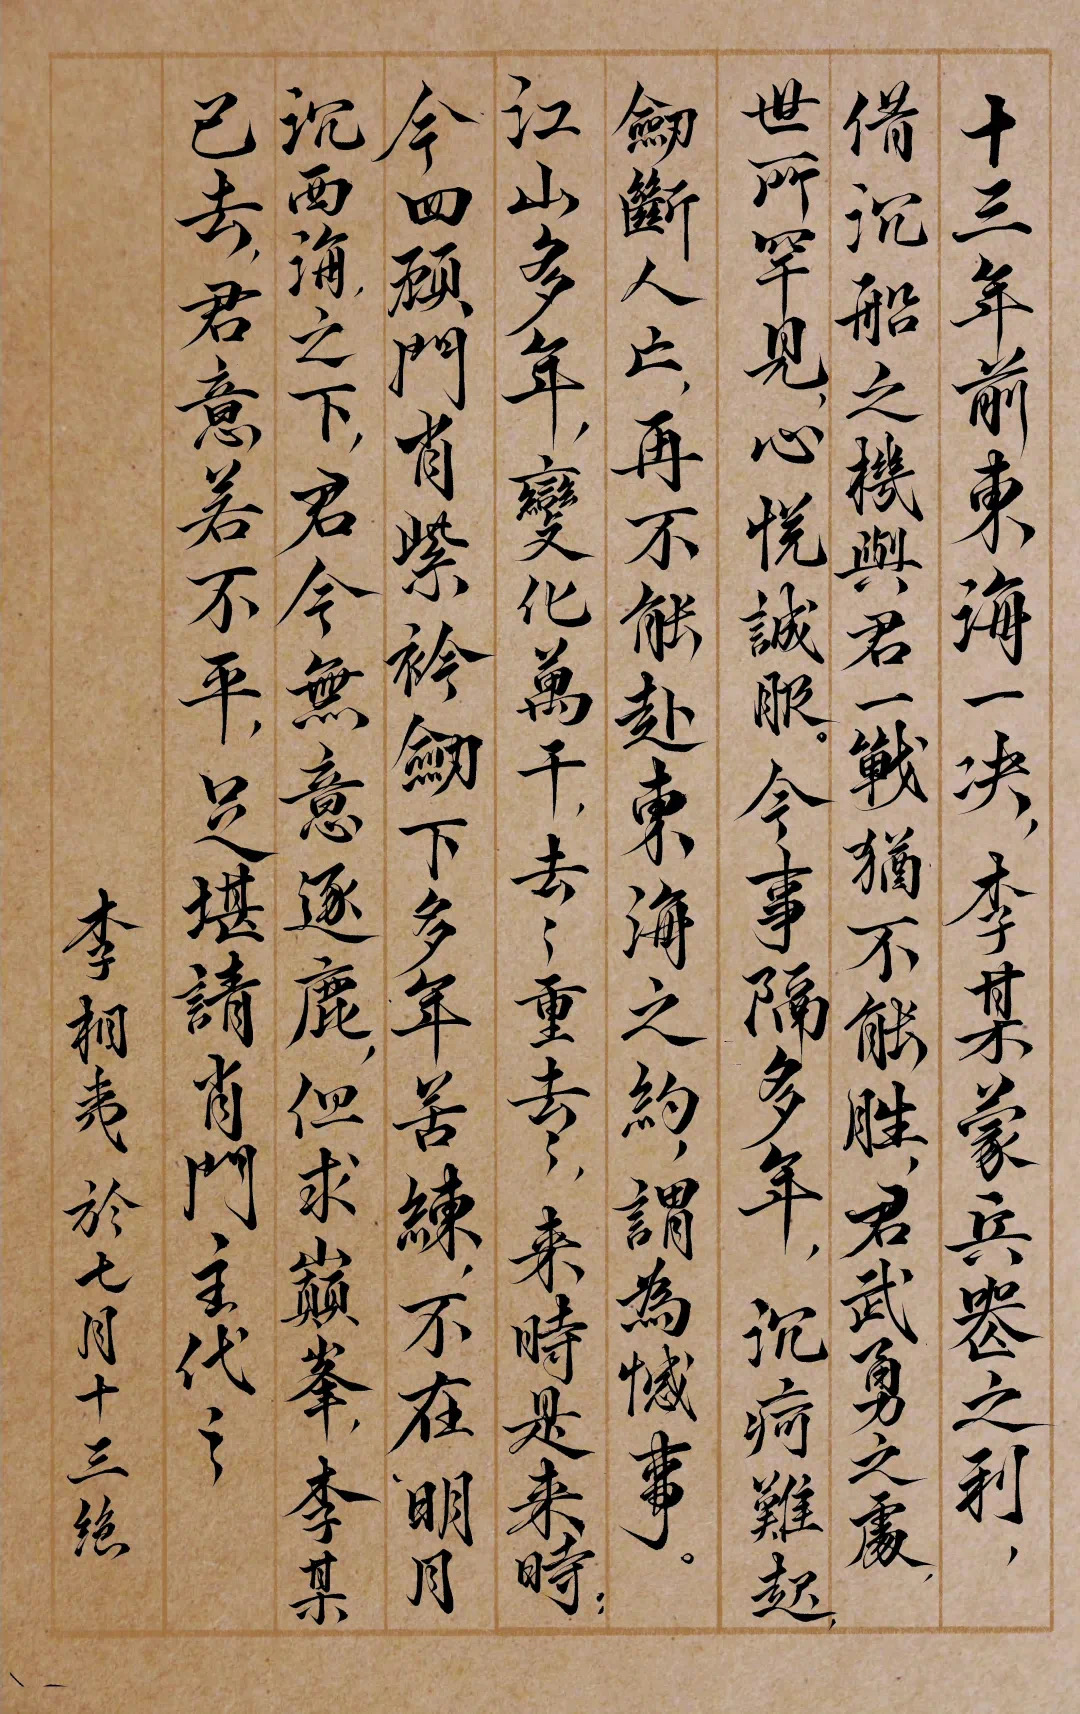 十三年前東海一决，李某蒙兵器之利，
借沉船之機與君一戰猶不能胜，君武勇之處，
世所罕見，心悦誠服。今事隔多年，沉疴難起，
劒斷人亡，再不能赴東海之約，謂為憾事。
江山多年，變化萬千，去〻重去〻，来時是来時；
今四顾門肖紫衿劒下多年苦練，不在明月
沉西海之下，君今無意逐鹿，但求巔峯，李某
已去，君意若不平，足堪請肖門主代之
李相夷於七月十三绝